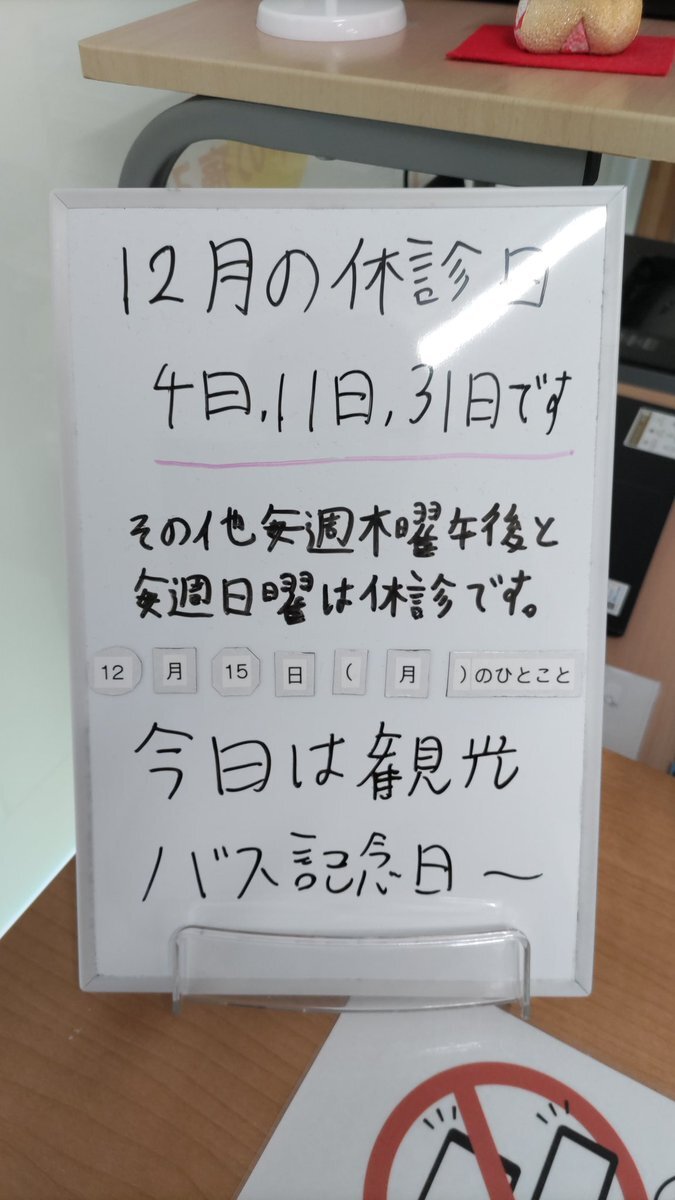 12月の休診日
4日,11日,31日です
その他毎週木曜午後と
毎週日曜は休診です。
12月15日(月)のひとこと
今日は観光
バス記念日～